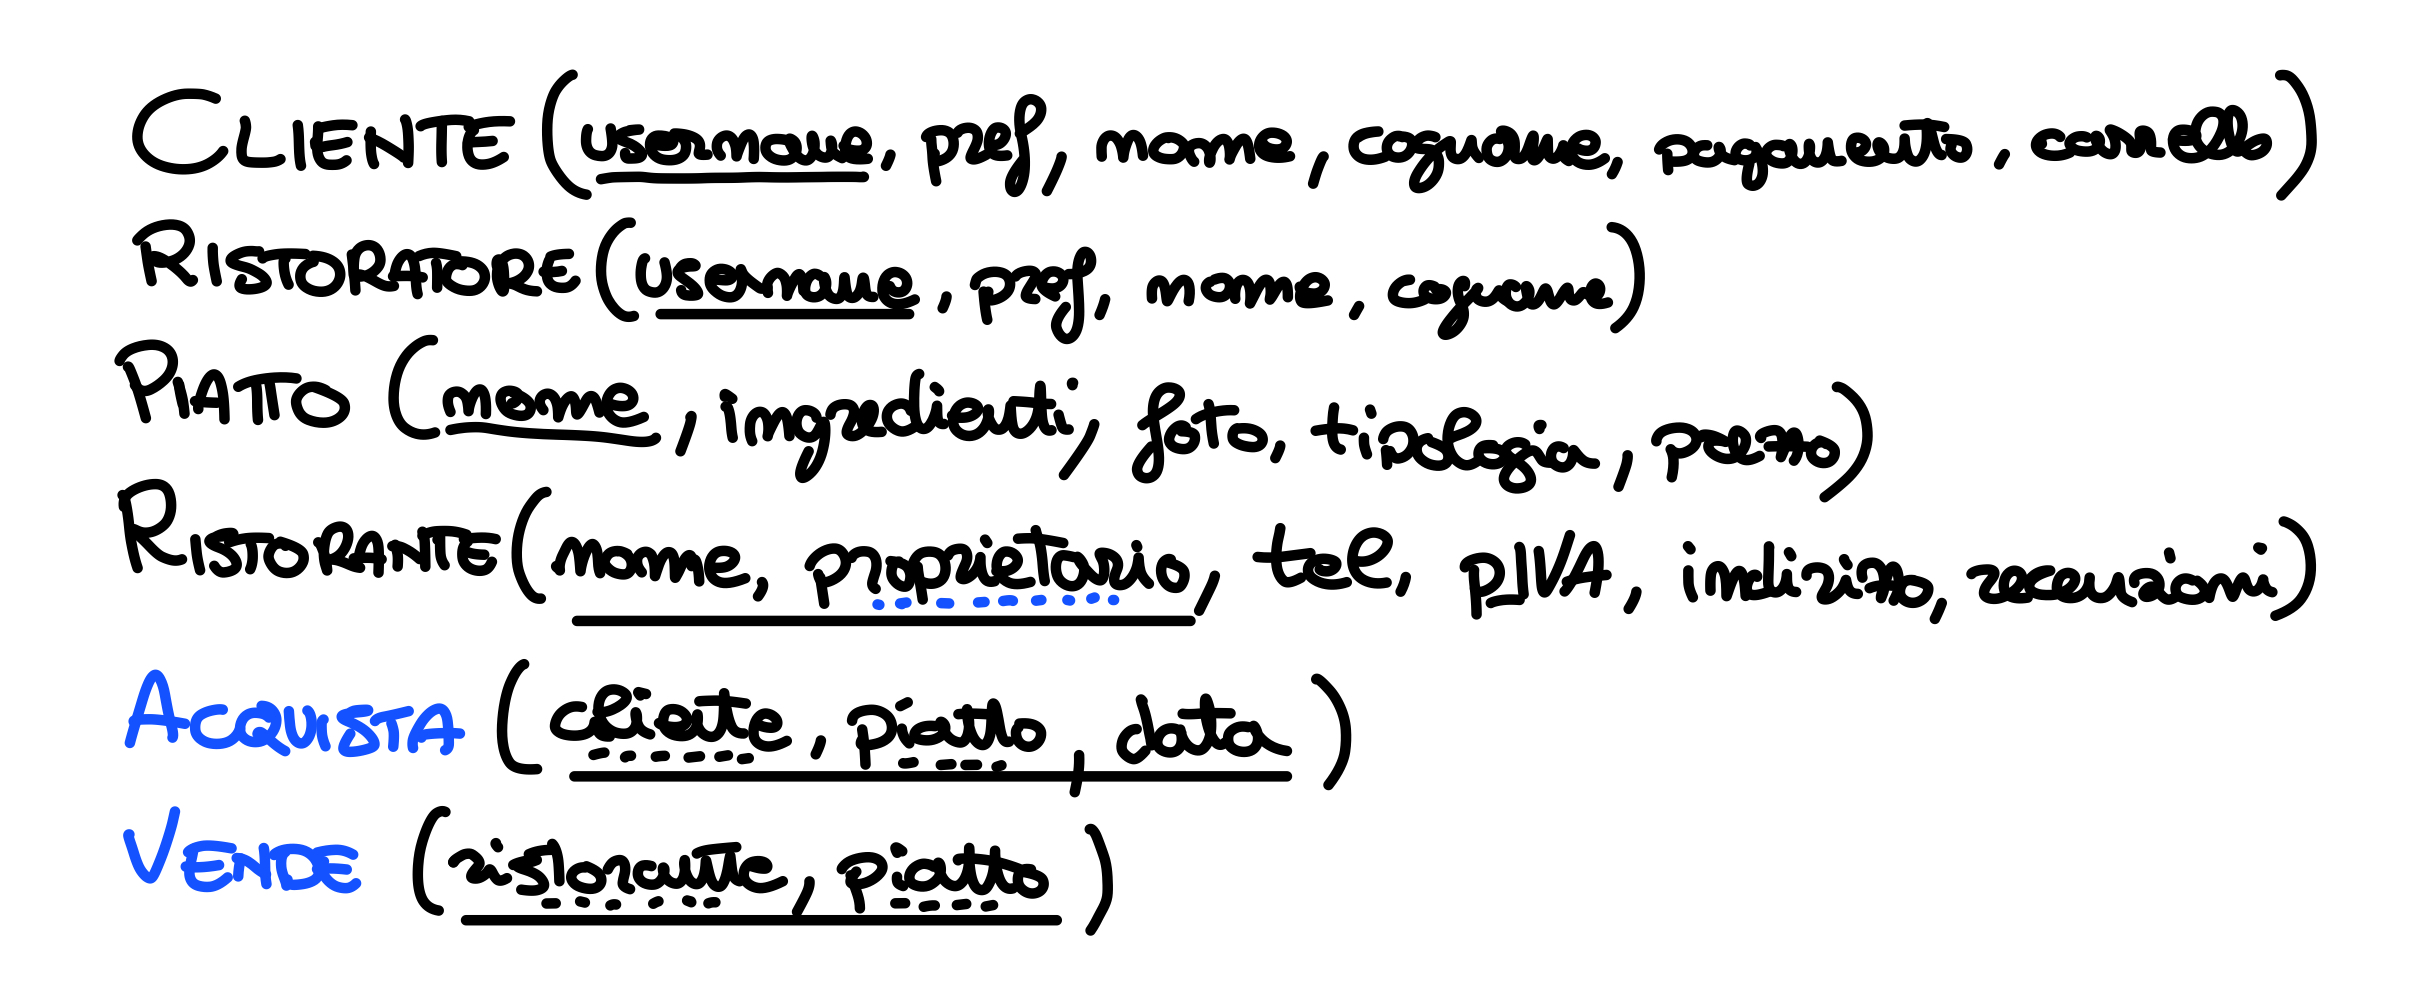 CLIENTE (username, pref, nome, cognome, pagamento, carrello)
RISTORATORE (username, pref, nome, cognome)
PIATTO (nome, ingredienti, foto, tipologia, prezzo)
RISTORANTE (nome, proprietario, tel, pIVA, indirizzo, recensioni)
ACQUISTA (cliente, piatto, data)
VENDE (ristorante, piatto)